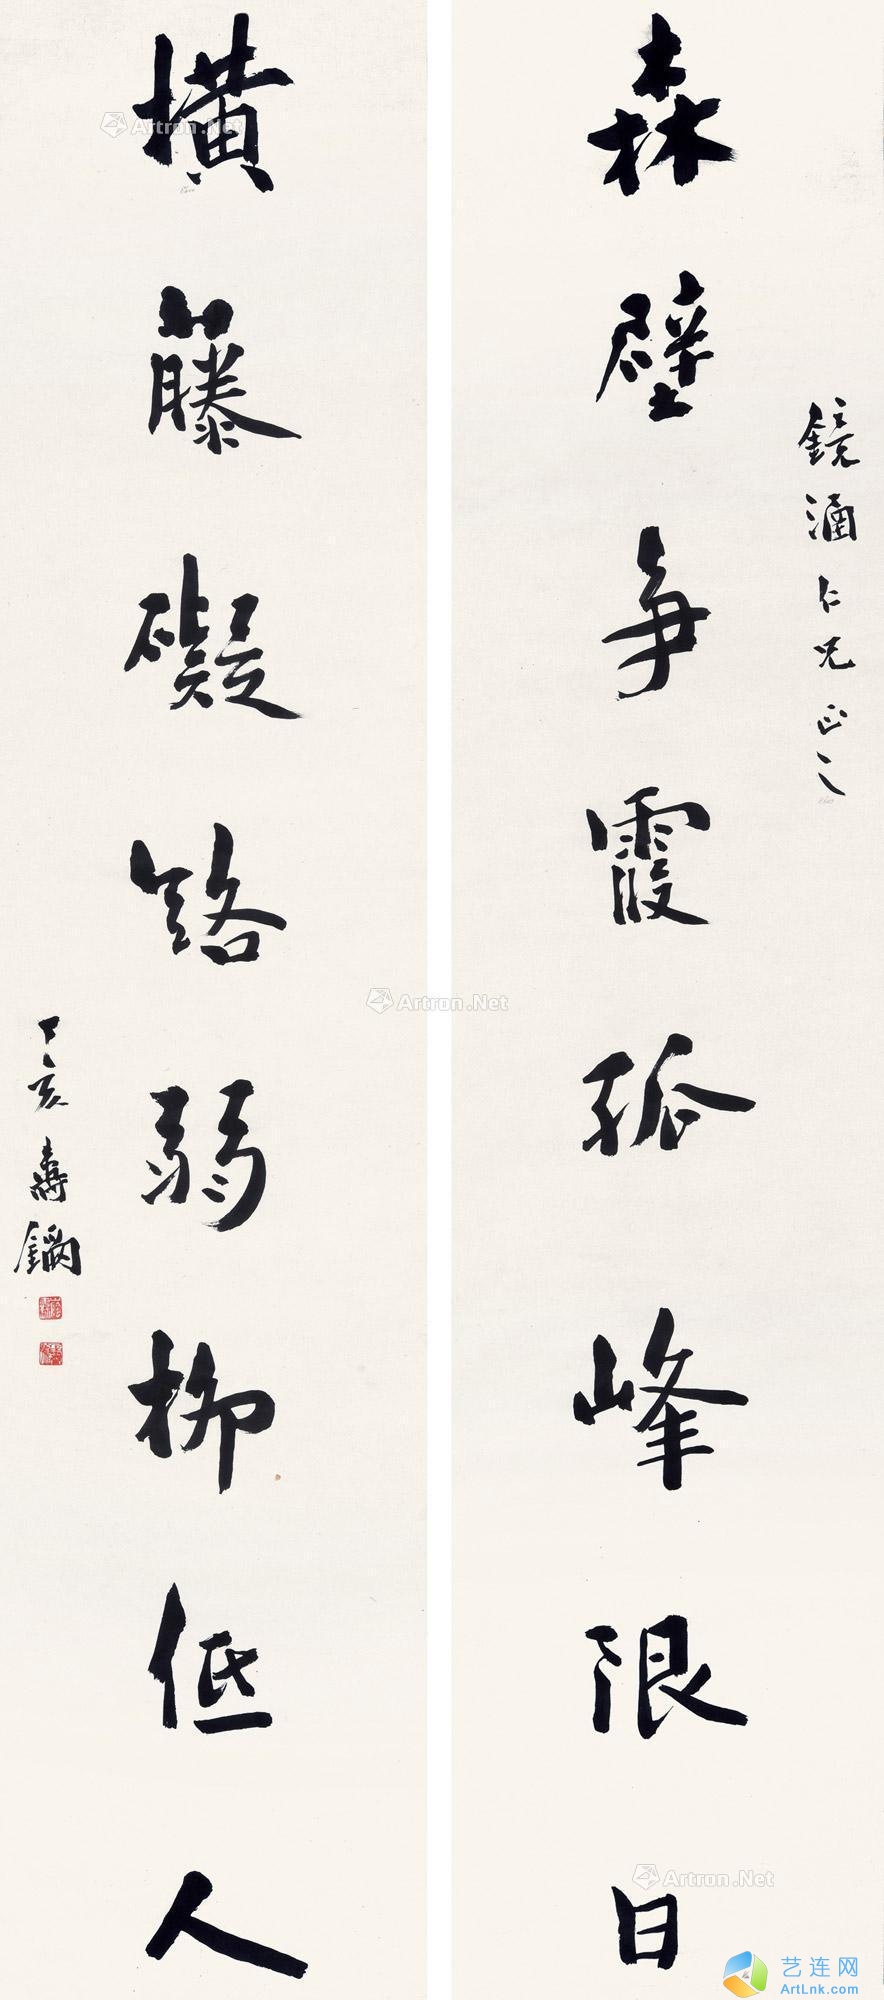 森壁争霞孤峰限日
鏡涵仁兄正之
横藤礙路弱柳低人
丁亥 壽鏋
Artron.Net
Artron.Net
Artron.Net
艺连网
ArtLnk.com